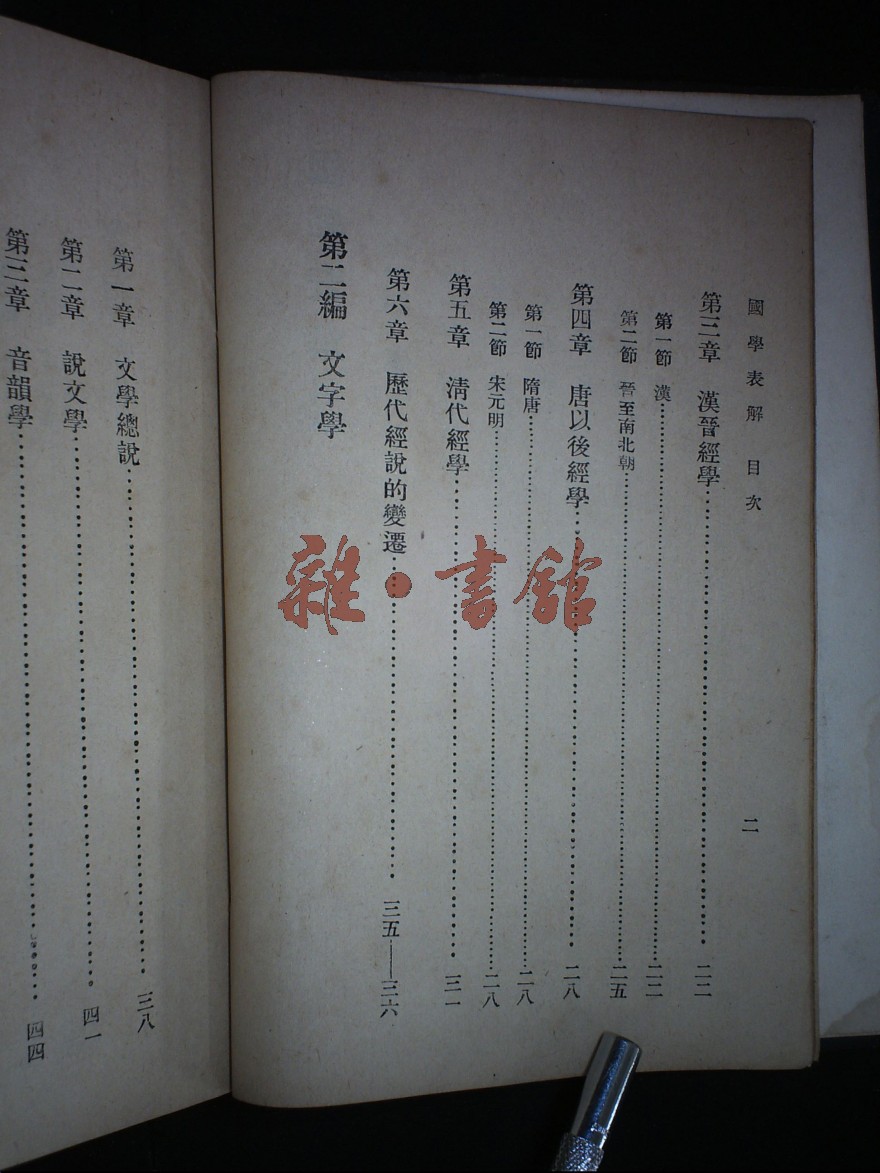 國學表解 目次
二
第三章 漢晉經學 二二
第一節 漢 二二
第二節 晉至南北朝 二五
第四章 唐以後經學 二八
第一節 隋唐 二八
第二節 宋元明 二八
第五章 淸代經學 三一
第六章 歷代經說的變遷 三五——三六
第二編 文字學
第一章 文學總說 三八
第二章 說文學 四一
第三章 音韻學 四四
雜·書館